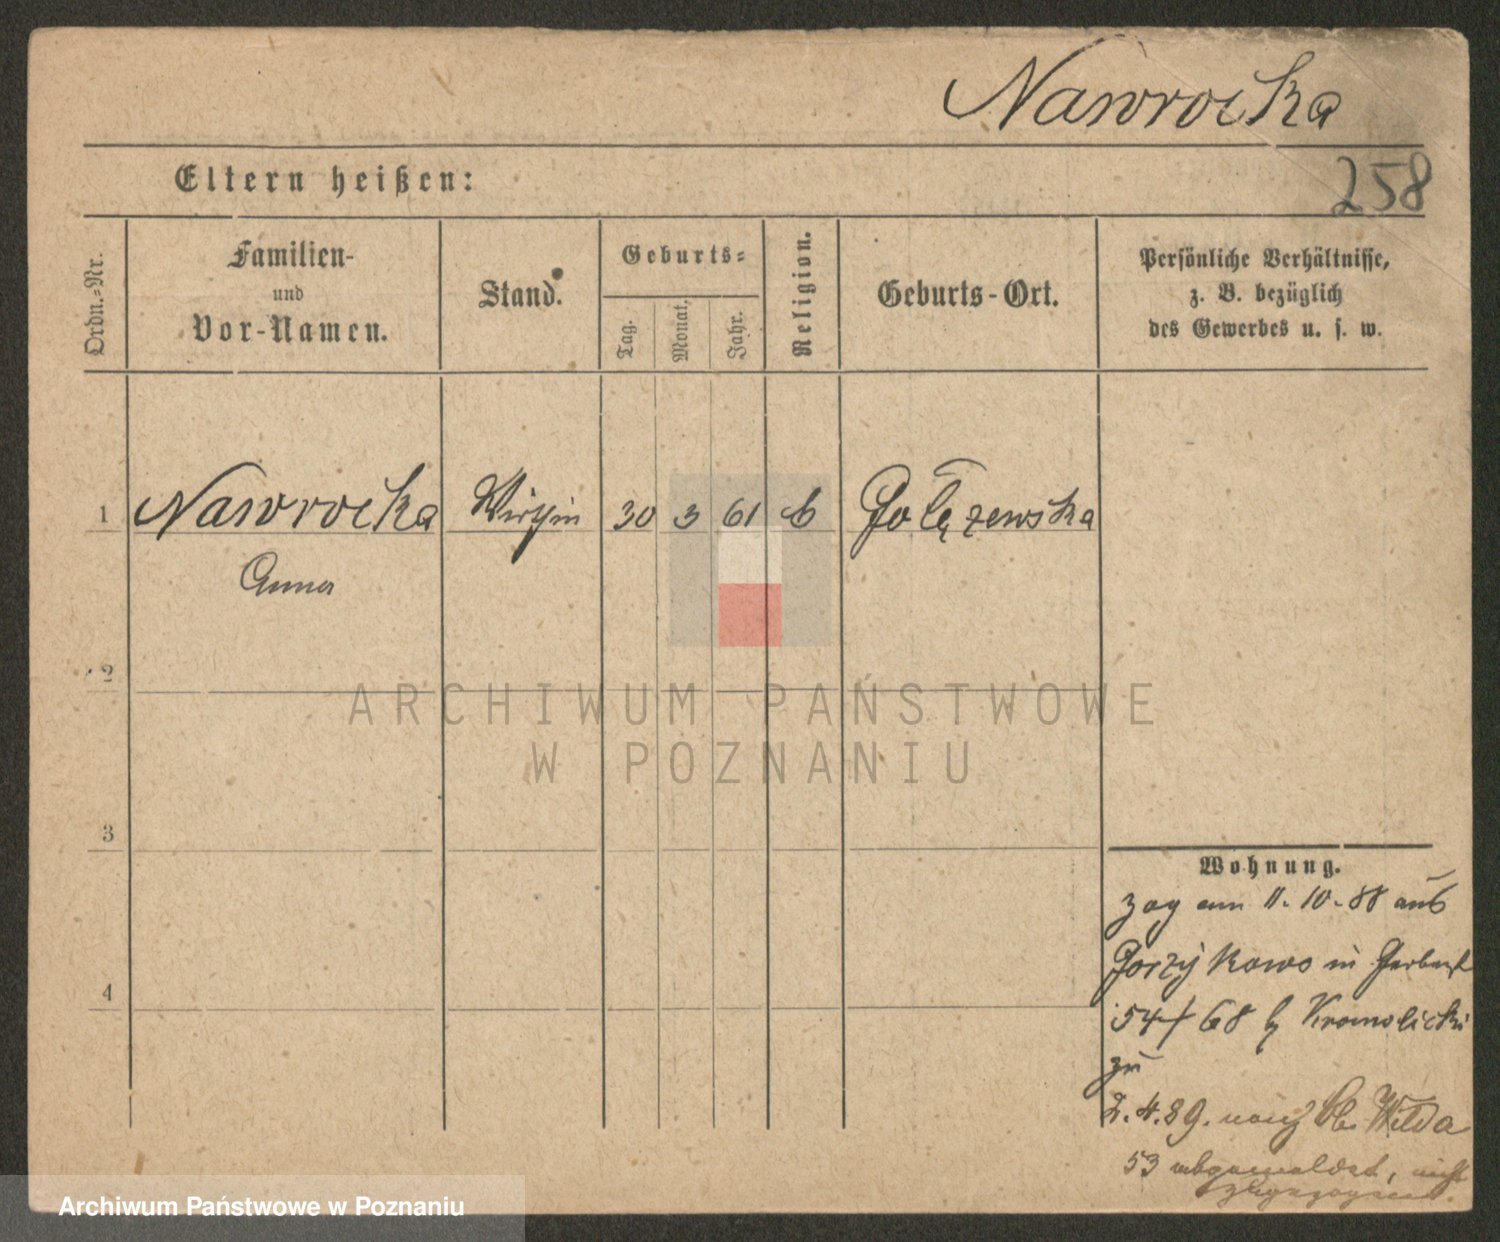 Nawrocka
258
Eltern heißen:
Ordn.-Nr.
Familien-
und
Vor-Namen.
Stand.
Geburts-
Tag.
Monat.
Jahr.
Religion.
Geburts-Ort.
Persönliche Verhältnisse,
z. B. bezüglich
des Gewerbes u. s. w.
1 Nawrocka Wirthin 30 3 61 k
Anna
2
3
4
ARCHIWUM PAŃSTWOWE
W POZNANIU
Wohnung.
zog am 11.10.88 aus
Gorzykowo in Gerberst
54/68 b Kromolicki
zu
2.4.89. nach Ob. Wilda
53 abgemeldet, nicht
Archiwum Państwowe w Poznaniu